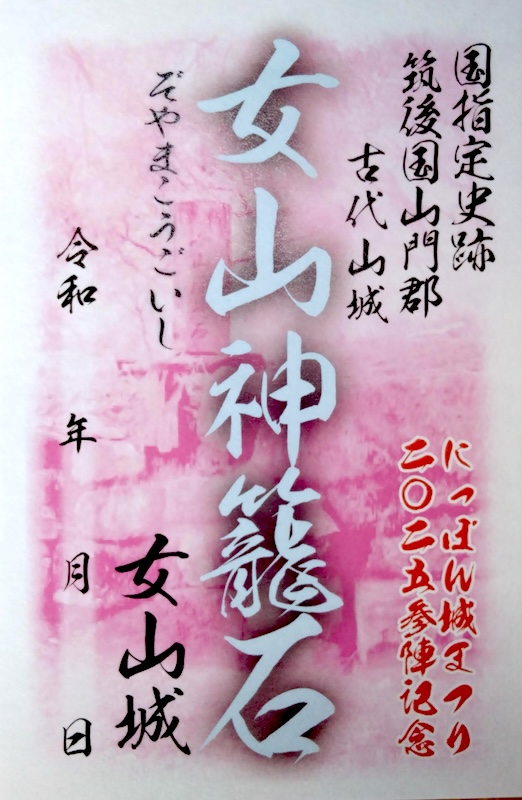 国指定史跡
筑後国山門郡
古代山城
にっぽん城まつり
二〇二五参陣記念
女山神籠石
ぞやまこうごいし
女山城
令和 年 月 日